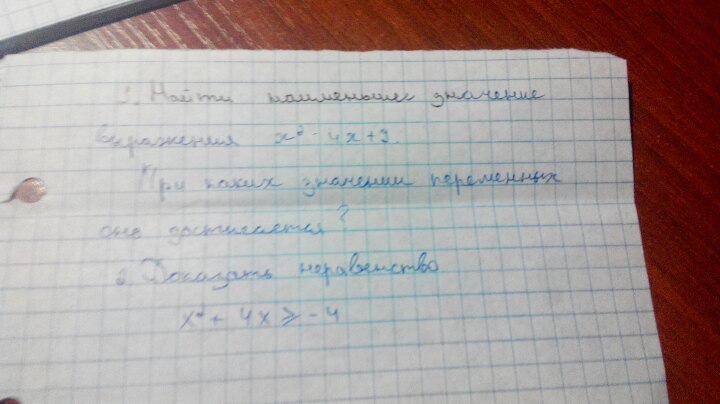 1. Найти наименьшее значение
выражения x² - 4x + 3.
При каких значении переменных
оно достигается?
2. Доказать неравенство
x² + 4x ⩾ -4